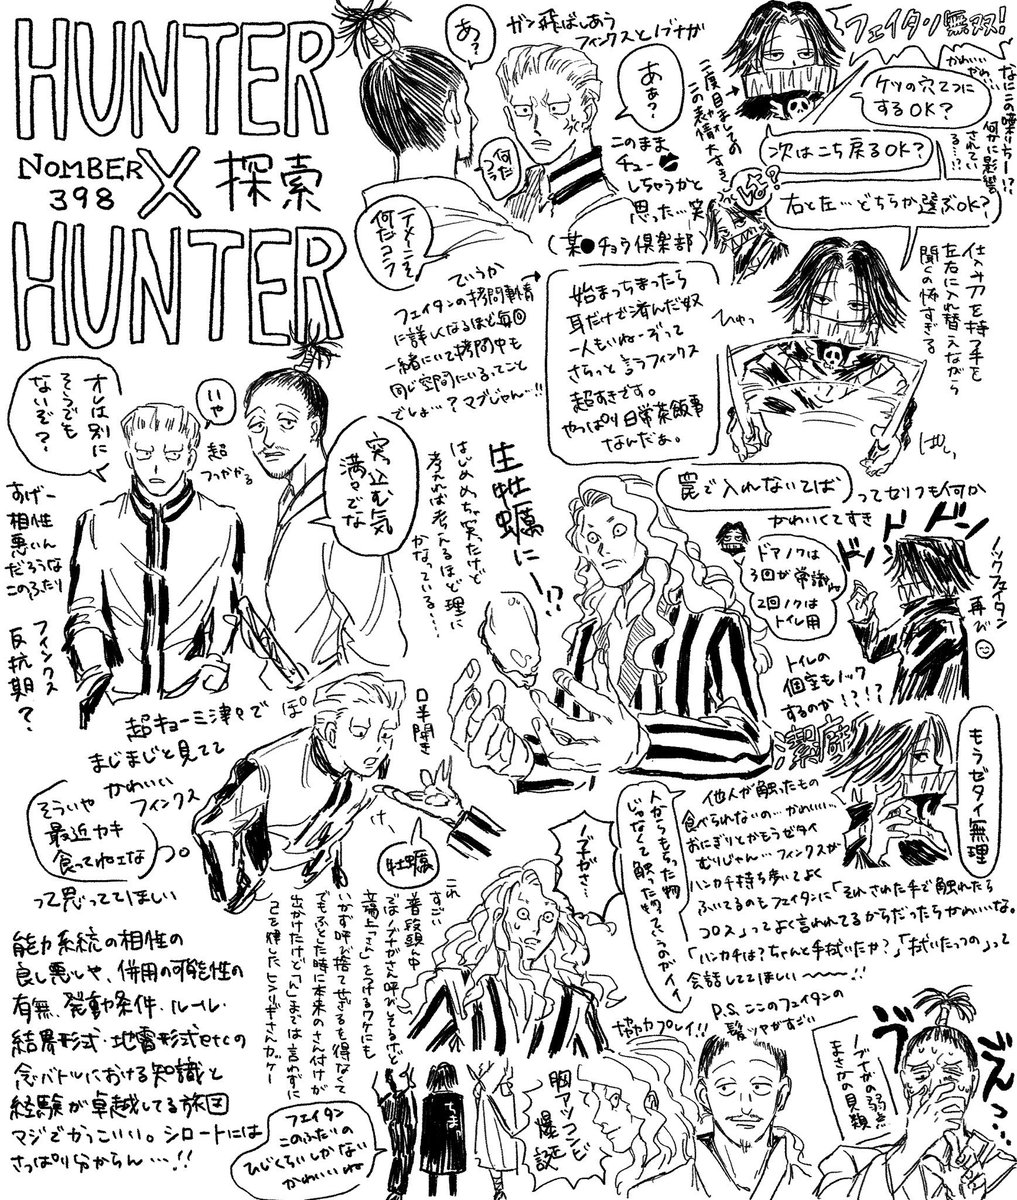 HUNTER
NOMBER
398
X
探索
HUNTER
あ?
ガン飛ばしあう
フィンクスとノブナガ
あぁ?
何だコラ
テメーこそ
何だコラ
このまま
チュー
しちゃうかと
思った…笑
(某●チョウ倶楽部)
二度目ましての
この表情大すき
フェイタン無双!
なにこの喋り方ー!?
かわいいかわいい
何かに影響
されてい
る…!?
ケツの穴2つに
するOK?
次はこち戻るOK?
は?
右と左…どちらか選ぶOK?
仕込み刀を持つ手を
左右に入れ替えながら
聞くの怖すぎる
ひゅっ
ばしっ
ていうか
フェイタンの拷問事情
に詳しくなるほど毎回
一緒にいて拷問中も
同じ空間にいるってこと
でしょ…?マブじゃん…!!
始まっちまったら
耳だけで済んだ奴
一人もいねーぞって
さらっと言うフィンクス
超すきです。
やっぱり日常茶飯事
なんだぁ。
オレは別に
そうでも
ないぞ?
いや
超
つっかかる
突っ込む気
満々でな
すげー
相性
悪いんだろうな
このふたり
フィンクス
反抗期?
生牡蠣に
!?
はじめめちゃ笑ったけど
考えれば考えるほど理に
かなっている…
罠で入れないてば
ってセリフも何か
かわいくてすき
ドアノクは
3回が常識ね
2回ノクは
トイレ用
ドン
ドン
ノックフェイタン
再び
トイレの
個室もノック
するのか!?!?
超キョーミ津々で
まじまじと見てて
かわいい
フィンクス
ぽ
口半開き
そういや
最近カキ
食ってねェな
って思っててほしい
牡蠣
潔癖
もうゼタイ無理
他人が触ったもの
食べられないの…かわいい…
おにぎりとかもうゼタイ
むりじゃん…フィンクスが
ハンカチ持ち歩いてよく
ふいてるのもフェイタンに「それされた手で触れたら
コロス」ってよく言われてるからだったらかわいいな。
「ハンカチは?ちゃんと手拭いたか?」「拭いたっつの」って
会話しててほしい〜〜〜!!
人からもらった物
じゃなくて触った物っていうのがイイ
ノブナガさ…
これ
すごい
普段頭ん中
ではノブナガさん呼びしてるけど
立場上「さん」をつけるワケにも
いかず呼び捨てせざるを得なくて
でもふとした時に本来のさん付けが
出かけたけど「ん」までは言わずに
ココで隠したヒンリギさんカッケー
能力系統の相性の
良し悪しや、併用の可能性の
有無、発動条件・ルール・
結界形式・地雷形式etcの
念バトルにおける知識と
経験が卓越してる旅団
マジでかっこいい。シロートには
さっぱり分からん…!!
フェイタン
このふたりの
ひじくらいしかない
かわいいね
協力プレイ!!
胸アツコンビ
爆誕
P.S. ここのフェイタンの
髪ツヤがすごい
ノブナガの弱点
まさかの貝類